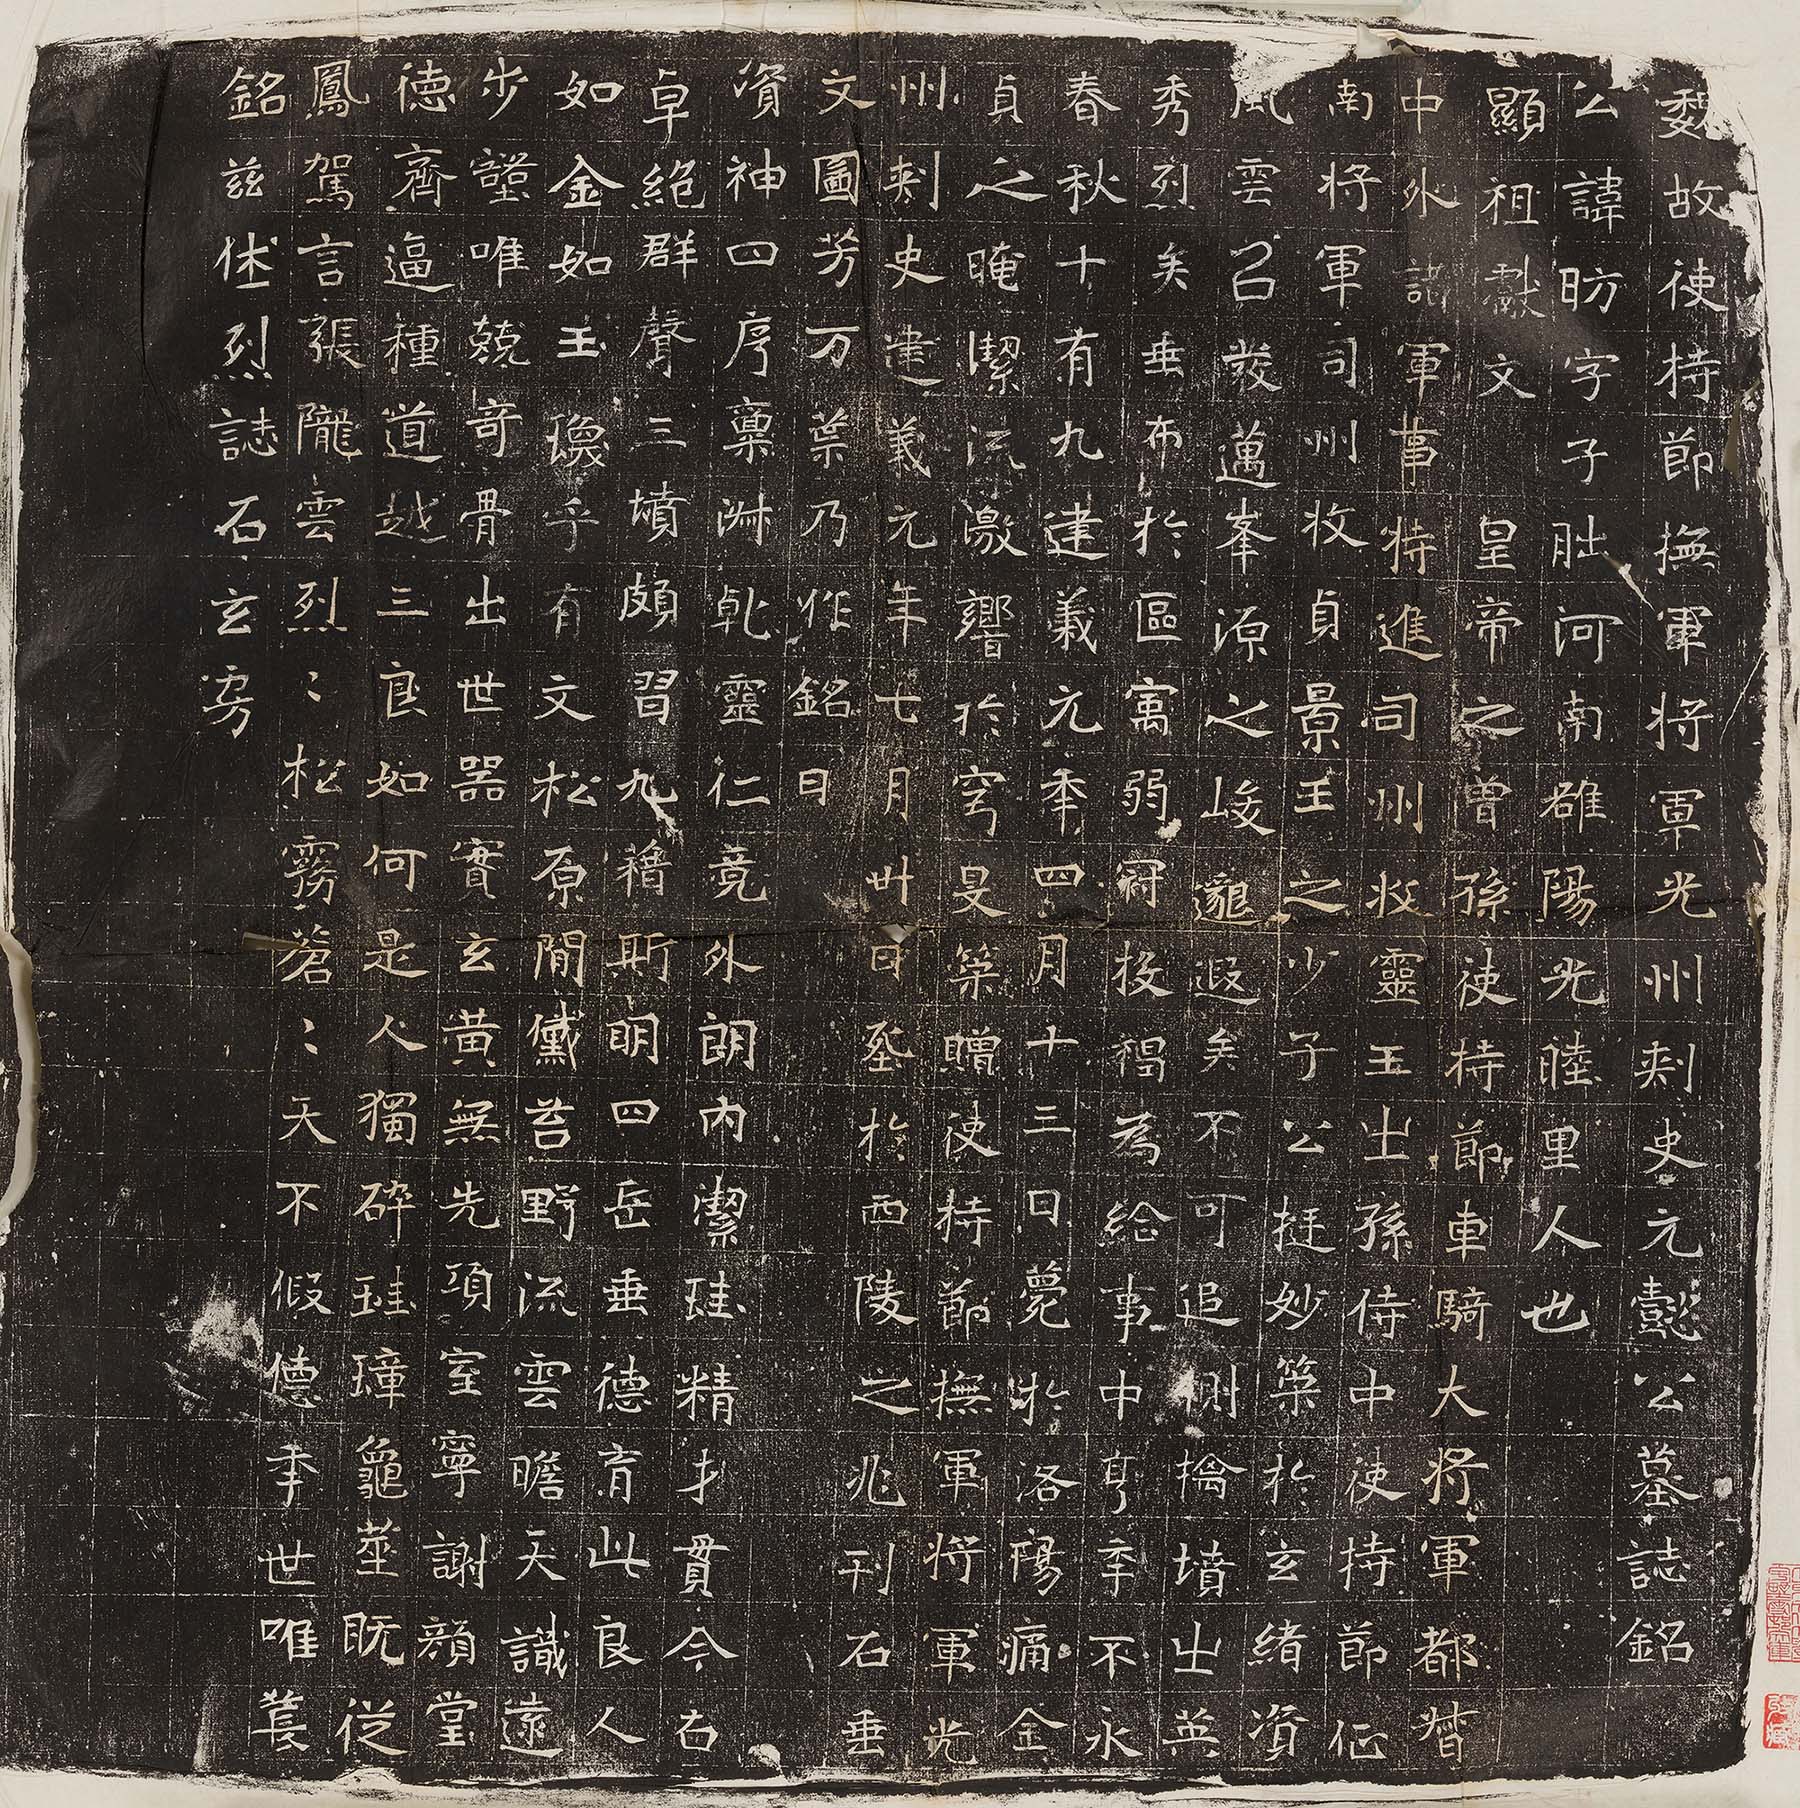 魏故使持節撫軍將軍光州刺史元懿公墓誌銘
公諱昉字子朏河南雒陽光睦里人也
顯祖獻文皇帝之曾孫使持節車騎大將軍都督
中外諸軍事特進司州牧靈王之孫侍中使持節征
南將軍司州牧貞景王之少子公挺妙築於玄緒資
風雲召發邁峯源之峻邈遐矣不可追測擒墳之英
秀烈矣垂布於區寓弱冠投褐為給事中享年不永
春秋十有九建義元年四月十三日薨於洛陽痛金
貞之晻潔流激響於穹旻築贈使持節撫軍將軍光
州刺史建義元年七月卅日塟於西陵之兆刊石垂
文圖芳万葉乃作銘曰
資神四序稟淋乹靈仁竟外朗內潔珪精才貫今古
卓絕群聲三墳頗習九籍斯朗四岳垂德育此良人
如金如玉瑍乎有文松原閒儻苔野流雲瞻天識遠
步壑唯兢奇骨出世器實玄黃無先項室寧謝顏堂
德齊逼種道越三良如何是人獨碎珪璋龜莁既從
鳳駕言張隴雲烈〻松霧蒼〻天不假德季世唯蕓
銘茲休烈誌石玄房